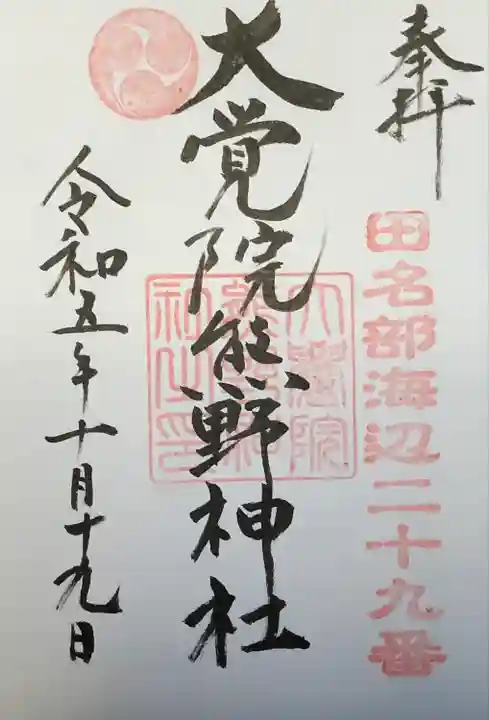 奉拝
田名部海辺二十九番
大覚院熊野神社
大覚院熊野神社之印
令和五年十月十九日